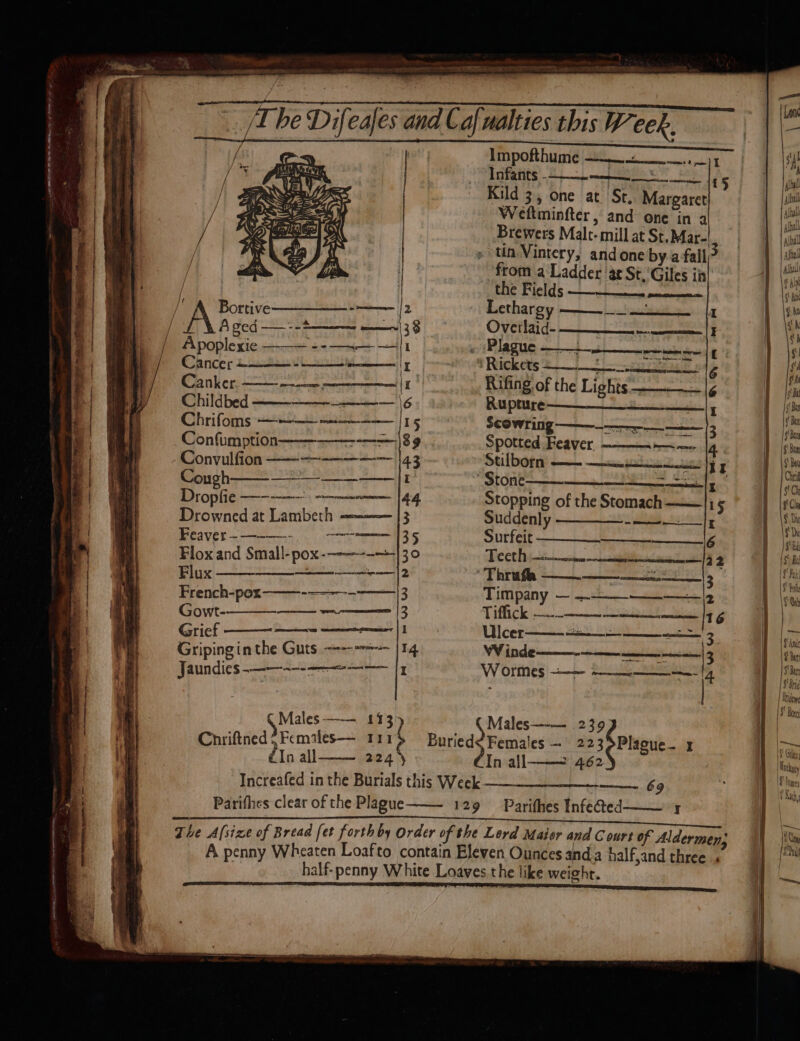 The Difeafes and Cafualties this Week.
Abortive 2
Aged 38
Apoplexie 1
Cancer 1
Canker 1
Childbed 6
Chrifoms 15
Confumption 89
Convulfion 43
Cough 1
Dropfie 44
Drowned at Lambeth 3
Feaver 35
Flox and Small-pox 30
Flux 2
French-pox 3
Gowt 3
Grief 1
Griping in the Guts 14
Jaundies 1
Impofthume 1
Infants 15
Kild 3, one at St. Margaret
Weftminfter, and one in a
Brewers Malt-mill at St. Mar-
tin Vintery, and one by a fall 3
from a Ladder at St. Giles in
the Fields
Lethargy 1
Overlaid 1
Plague 1
Rickets 6
Rifing of the Lights 6
Rupture 1
Scowring 3
Spotted Feaver 4
Stilborn 11
Stone 1
Stopping of the Stomach 15
Suddenly 1
Surfeit 6
Teeth 22
Thrufh 3
Timpany 2
Tiffick 16
Ulcer 3
Winde 3
Wormes 4
Chriftned Males 113 Females 111 In all 224
Buried Males 239 Females 223 In all 462 Plague 1
Increafed in the Burials this Week 69
Parifhes clear of the Plague 129 Parifhes Infected 1
The Afsize of Bread fet forth by Order of the Lord Maior and Court of Aldermen,
A penny Wheaten Loaf to contain Eleven Ounces and a half, and three
half-penny White Loaves the like weight.